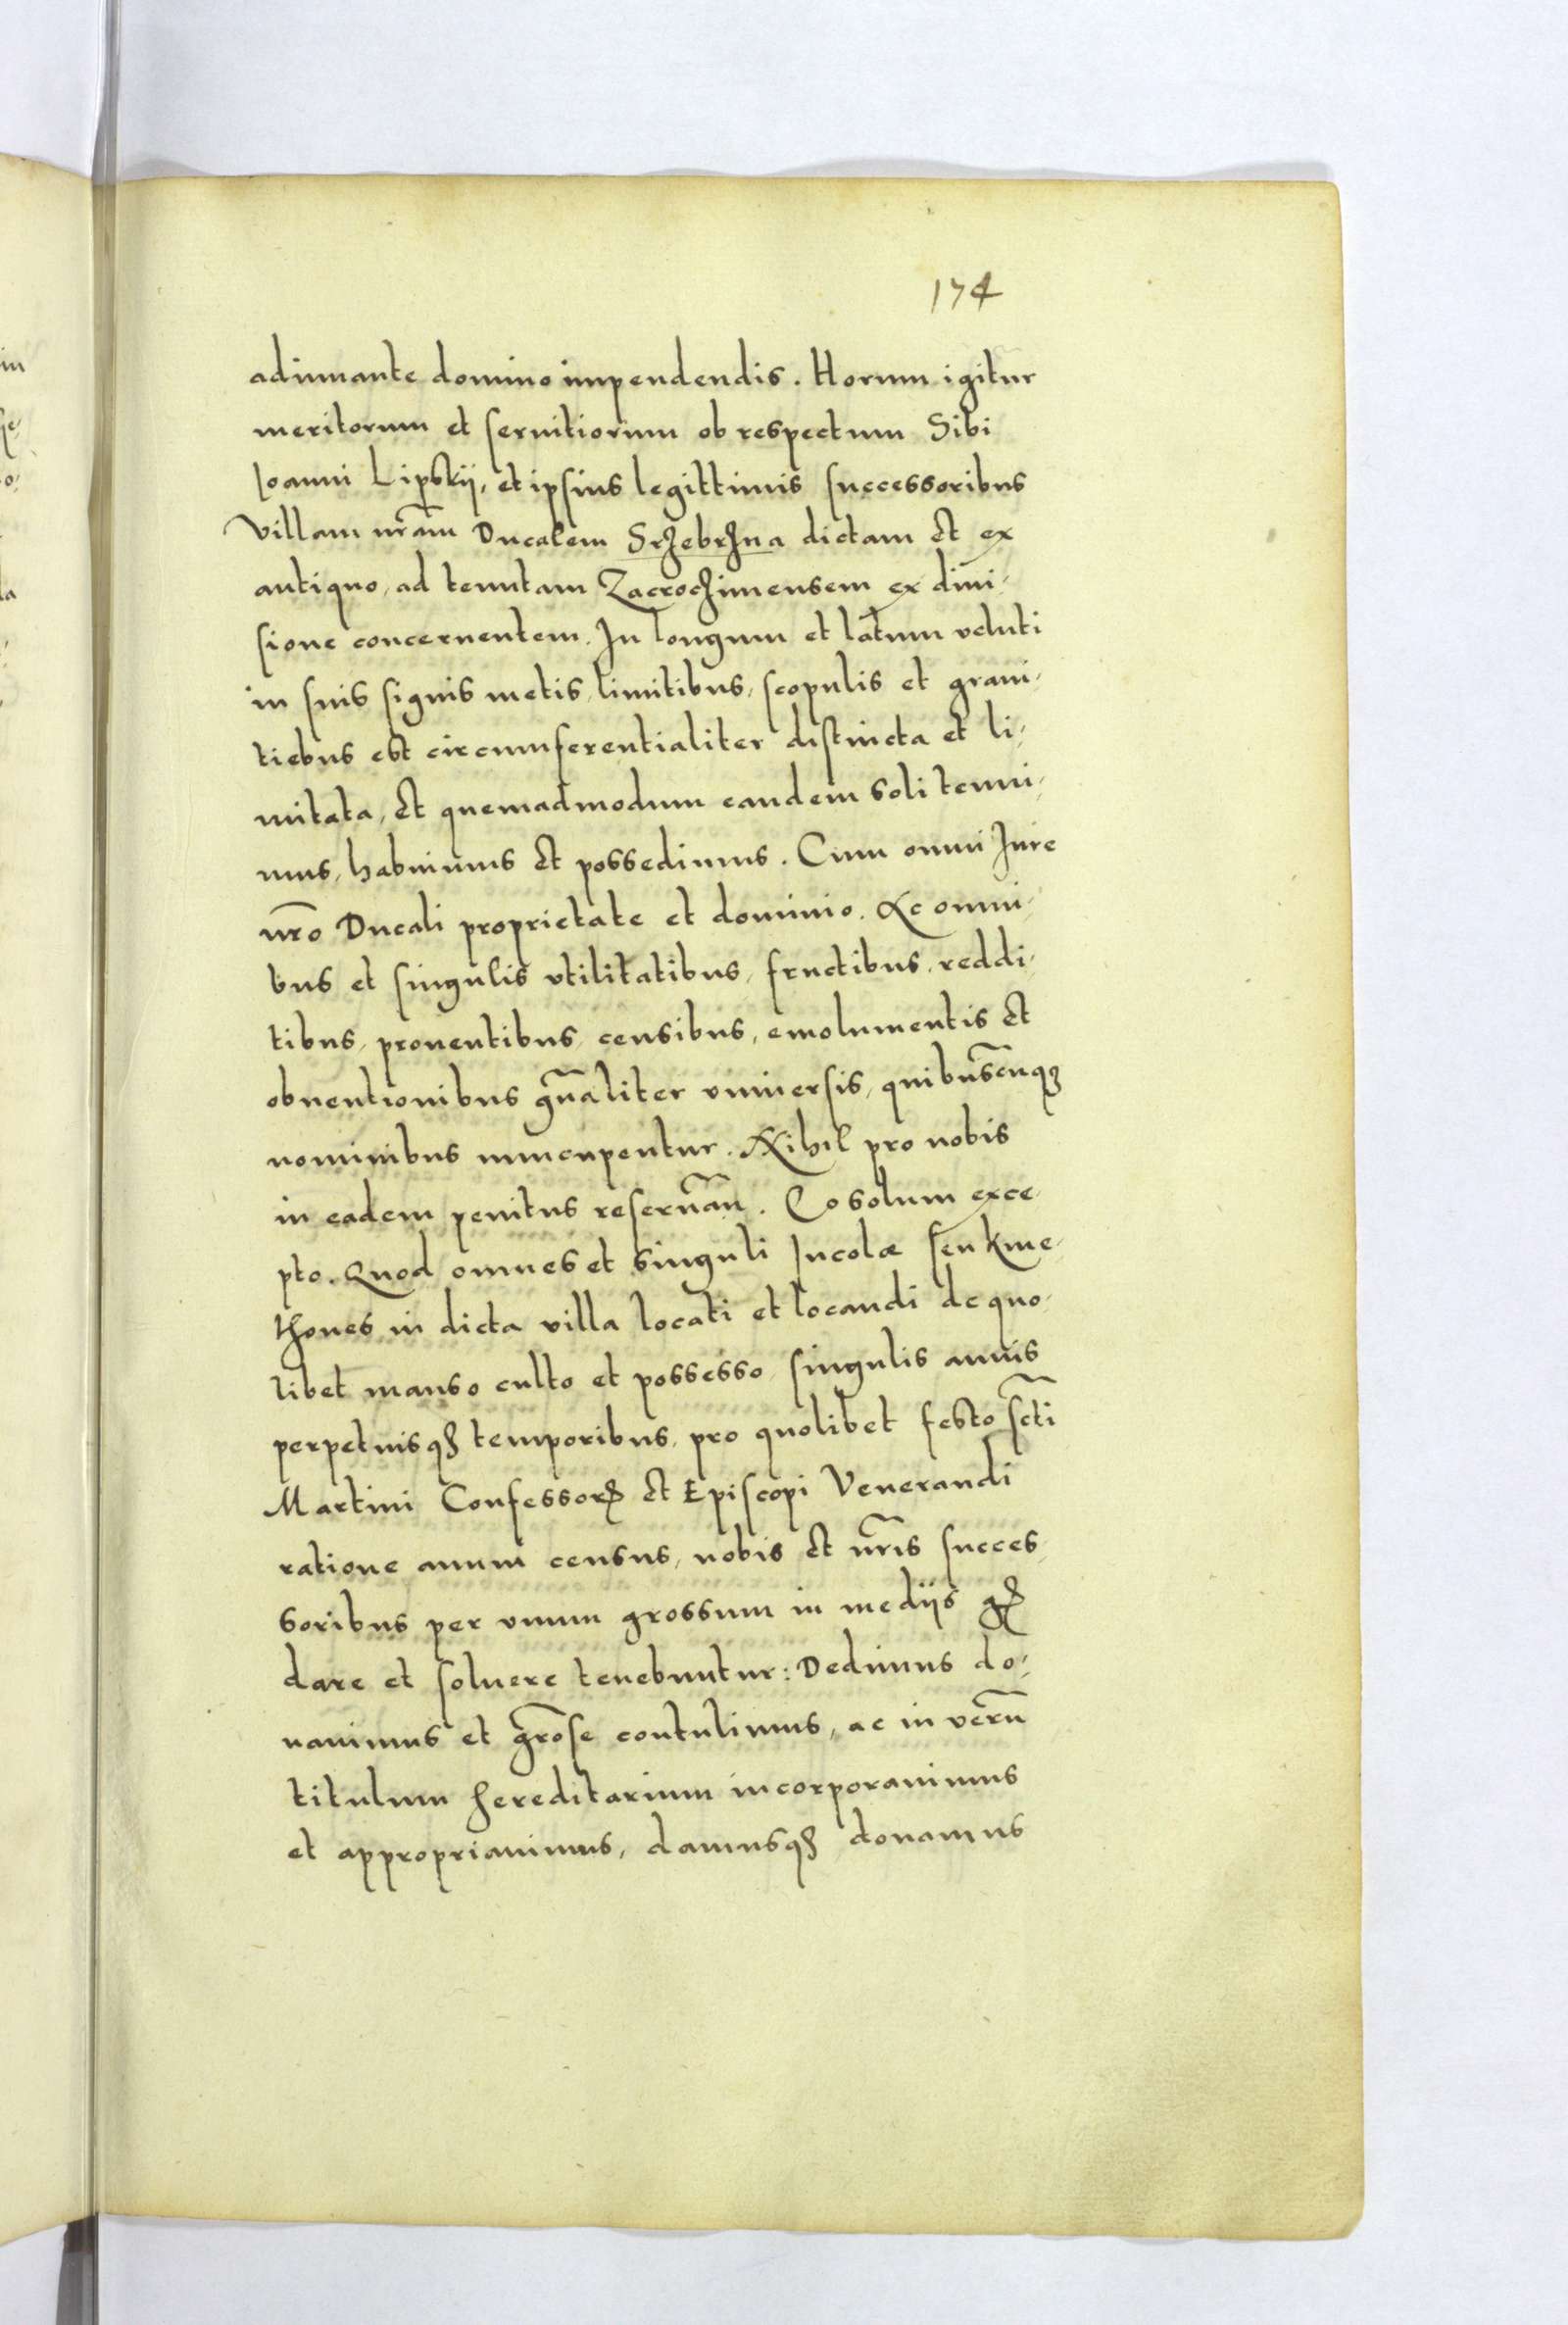 174
adiuuante domino impendendis. Horum igitur
meritorum et seruitiorum ob respectum Sibi
Ioanni Lipskij, et ipsius legittimis successoribus
villam nr̃am Ducalem Srzebrzna dictam et ex
antiquo, ad tenutam Zacroczimensem ex diui-
sione concernentem. In longum et latum veluti
in suis signis metis, limitibus, scopulis et grani-
tiebus est circumferentialiter distincta et li-
mitata, et quemadmodum eandem soli tenui-
mus, habuimus et possedimus. Cum omni Iure
nr̃o Ducali proprietate et dominio. Ac omni-
bus et singulis vtilitatibus, fructibus, reddi-
tibus, prouentibus, censibus, emolumentis et
obuentionibus gñaliter vniuersis, quibuscũqꝫ
nominibus nuncupentur. Nihil pro nobis
in eadem penitus reseruãn. Eo solum exce-
pto. Quod omnes et singuli Incolæ seu kme-
thones in dicta villa locati et locandi de quo-
libet manso culto et possesso singulis annis
perpetuisqꝫ temporibus, pro quolibet festo sc̃ti
Martini Confessorꝭ et Episcopi Venerandi
ratione annui census, nobis et nr̃is succes-
soribus per vnum grossum in medijs gꝭ
dare et soluere tenebuntur: Dedimus do-
nauimus et gr̃ose contulimus, ac in verũ
titulum hereditarium incorporauimus
et appropriauimus, damusqꝫ donamus